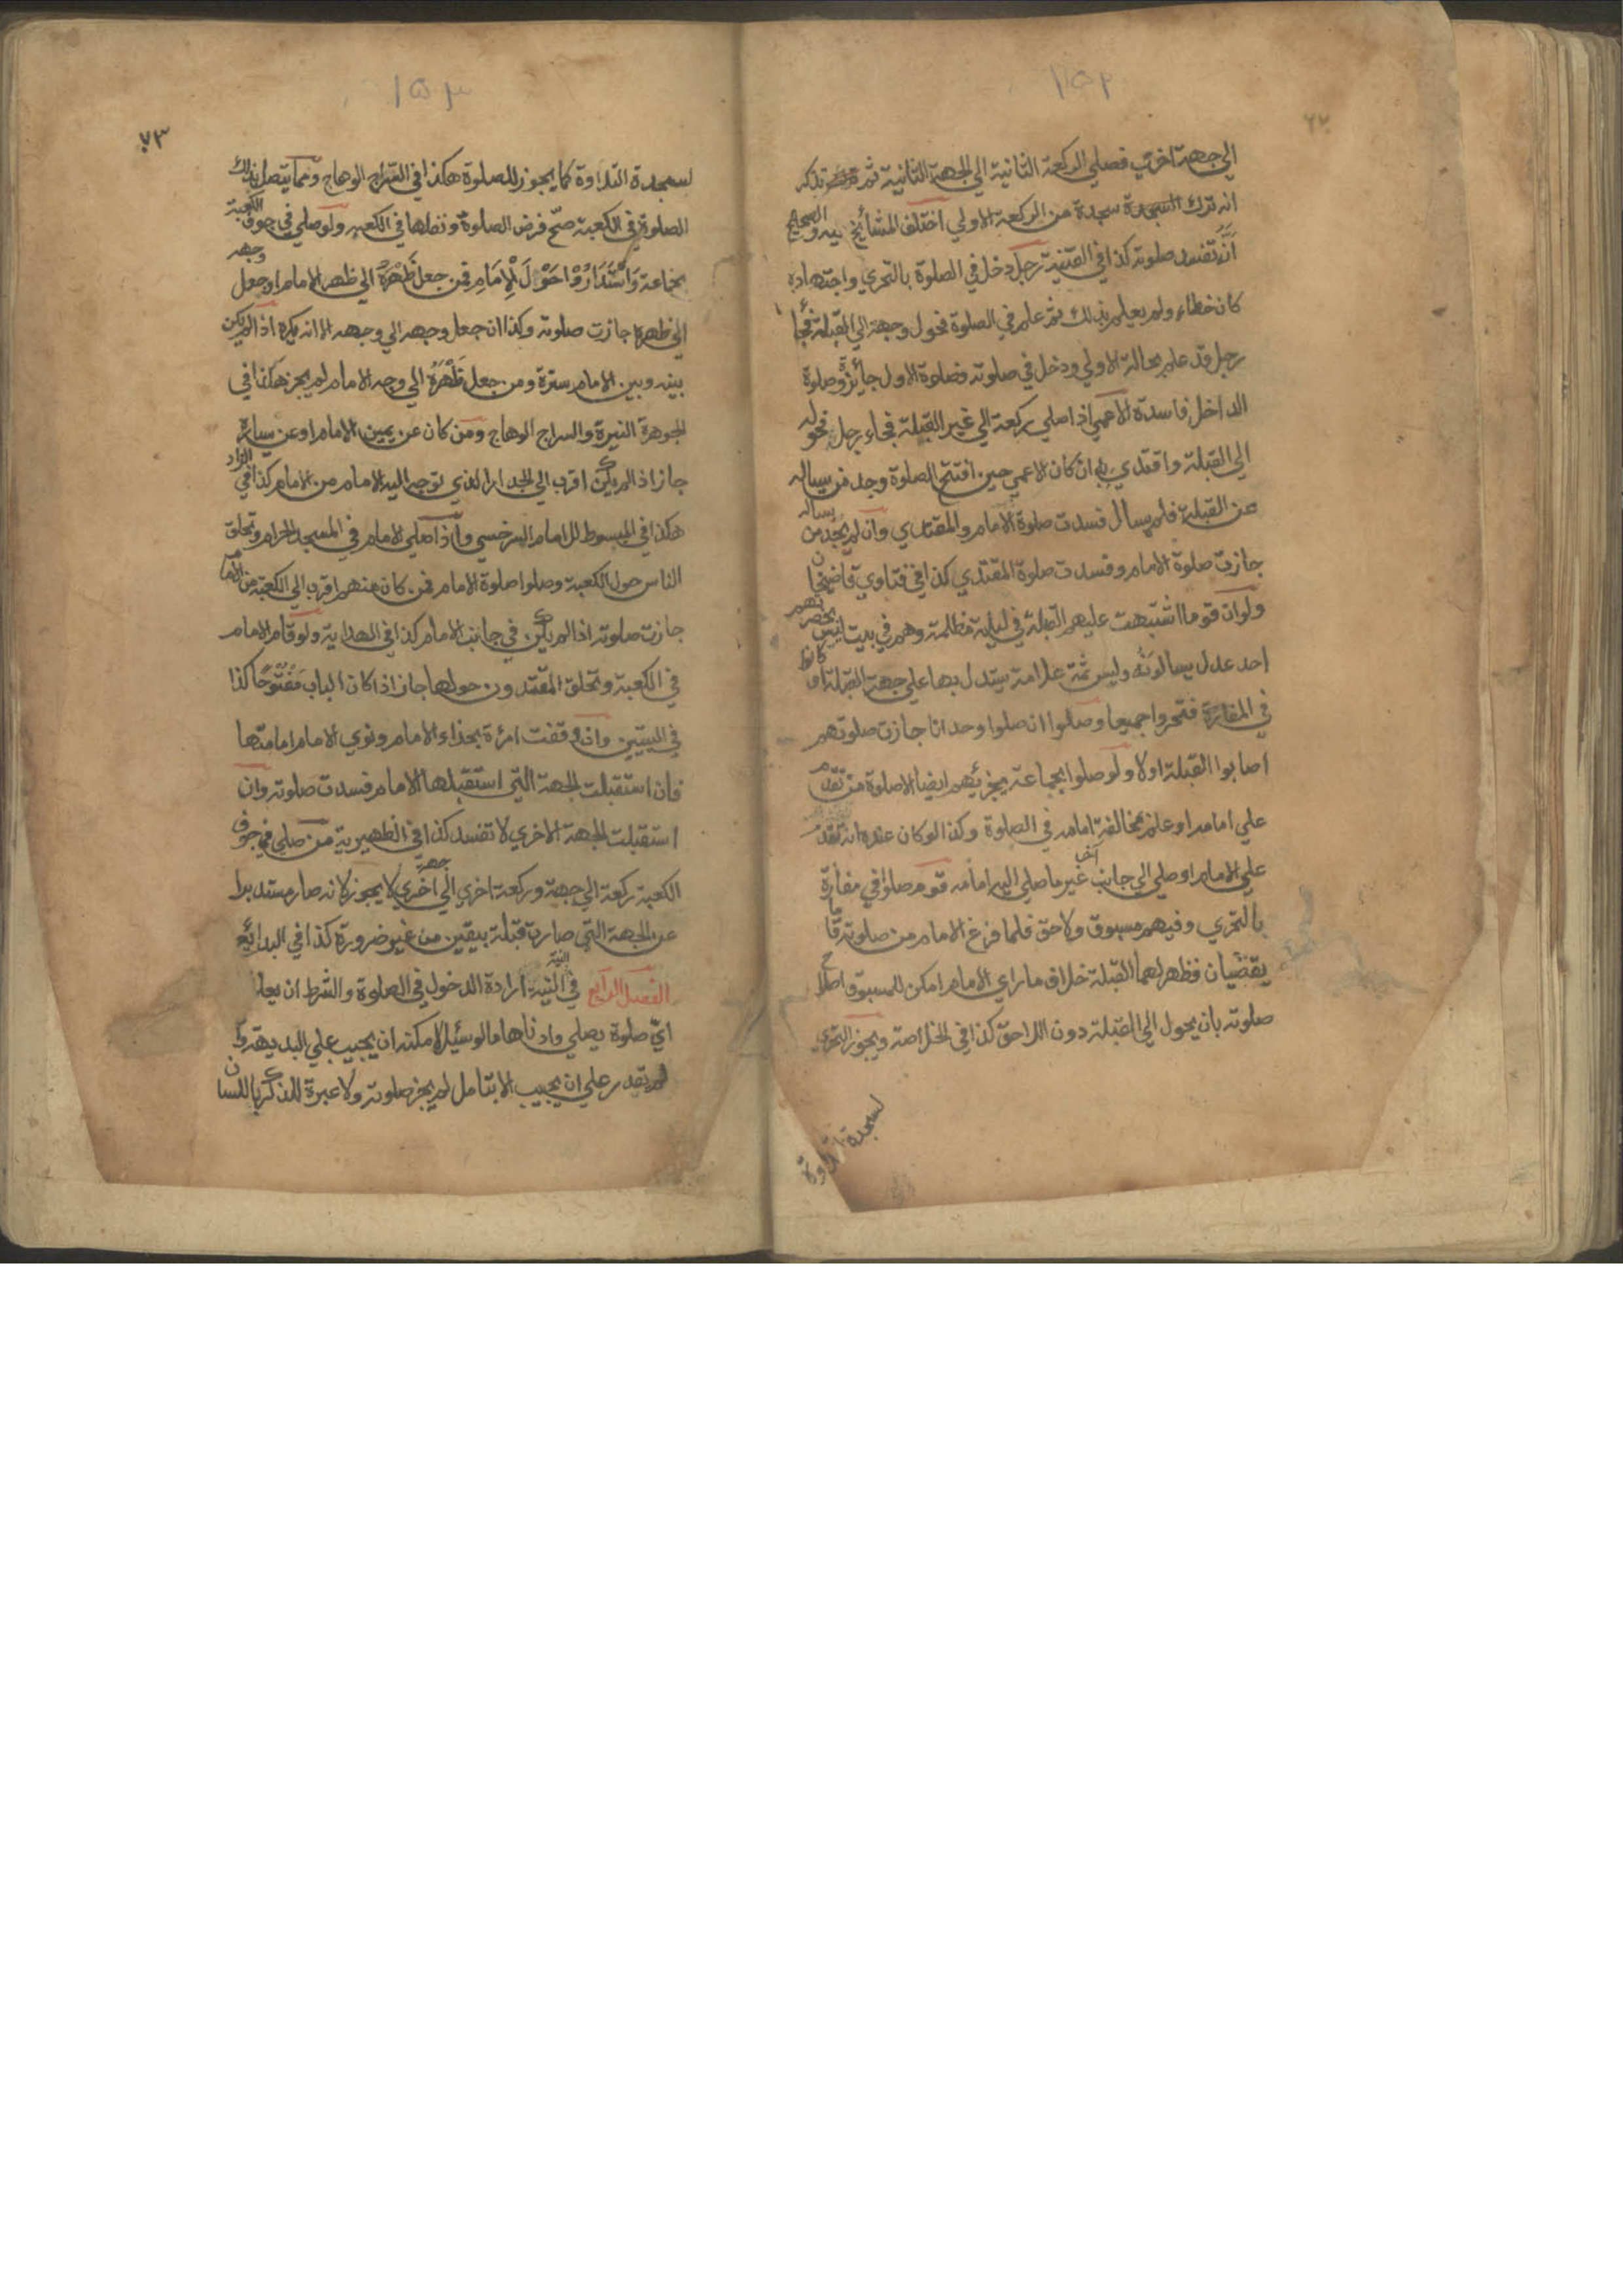 ١٥٢
الي جهة اخري فصلي الركعة الثانية الي الجهة الثانية ثم تذكر
انه ترك السجدة سجدة من الركعة الاولي اختلف المشائخ فيه والصحيح
انه تفسد صلوته كذا في القنية رجل دخل في الصلوة بالتحري واجتهاده
كان خطاء ولم يعلم بذلك ثم علم في الصلوة فحول وجهه الي القبلة فجاء
رجل قد علم بحالة الاولي ودخل في صلوته فصلوة الاول جائزة وصلوة
الداخل فاسدة الاعمي اذا صلي ركعة الي غير القبلة فجاء رجل فحوله
الي القبلة واقتدي به ان كان الاعمي حين افتتح الصلوة وجد من يساله
عن القبلة فلم يسال فسدت صلوة الامام والمقتدي وان لم يجد من يساله
جازت صلوة الامام وفسدت صلوة المقتدي كذا في فتاوي قاضيخان
ولو ان قوما اشتبهت عليهم القبلة في ليلة مظلمة وهم في بيت ليس بحضرتهم
احد عدل يسالونه وليس ثمة علامة يستدل بها علي جهة القبلة او كانوا
في المفازة فتحروا جميعا وصلوا ان صلوا وحدانا جازت صلوتهم
اصابوا القبلة اولا ولو صلوا بجماعة يجزئهم ايضا الا صلوة من تقدم
علي امامه او علم بمخالفة امامه في الصلوة وكذا لو كان عنده انه تقدم
علي الامام او صلي الي جانب آخر غير ما صلي اليه امامه قوم صلوا في مفازة
بالتحري وفيهم مسبوق ولاحق فلما فرغ الامام من صلوته قاما
يقضيان فظهر لهما القبلة خلاف ما راي الامام امكن للمسبوق اصلاح
صلوته بان يحول الي القبلة دون اللاحق كذا في الخلاصة ويجوز التحري
لسجدة التلاوة
١٥٣
٧٣
لسجدة التلاوة كما يجوز للصلوة هكذا في السراج الوهاج ومما يتصل بذلك
الصلوة في الكعبة صح فرض الصلوة ونفلها في الكعبه ولو صلي في جوف الكعبة
بجماعة وَاسْتَدَارُوْا حَوْلَ الْاِمَامِ فمن جعل ظَهْرَهُ الي ظهر الامام او جعل وجهه
الي ظهره جازت صلوته وكذا ان جعل وجهه الي وجهه الا انه يكره اذا لم يكن
بينه وبين الامام سترة ومن جعل ظَهْرَهُ الي وجه الامام لم يجز هكذا في
الجوهرة النيرة والسراج الوهاج ومن كان عن يمين الامام او عن يساره
جاز اذا لم يكن اقرب الي الجدار الذي توجه اليه الامام من الامام كذا في الزاد
هكذا في المبسوط للامام السرخسي واذا صلي الامام في المسجد الحرام وتحلق
الناس حول الكعبة وصلوا صلوة الامام فمن كان منهم اقرب الي الكعبة من الامام
جازت صلوته اذا لم يكن في جانب الامام كذا في الهداية ولو قام الامام
في الكعبة وتحلق المقتدون حولها جاز اذا كان الباب مَفْتُوْحًا كذا
في التبيين وان وقفت امرءة بحذاء الامام ونوي الامام امامتها
فان استقبلت الجهة التي استقبلها الامام فسدت صلوته وان
استقبلت الجهة الاخري لا تفسد كذا في الظهيرية من صلي في جوف
الكعبة ركعة الي جهة وركعة اخري الي جهة اخري لا يجوز لانه صار مستدبرا
عن الجهة التي صارت قبلة بيقين من غير ضرورة كذا في البدائع
الفصل الرابع في النية النية ارادة الدخول في الصلوة والشرط ان يعلم
اي صلوة يصلي وادناها ما لو سئيل لامكنه ان يجيب علي البديهة وان
لم يقدر علي ان يجيب الا بتامل لم يجز صلوته ولا عبرة للذكر باللسان